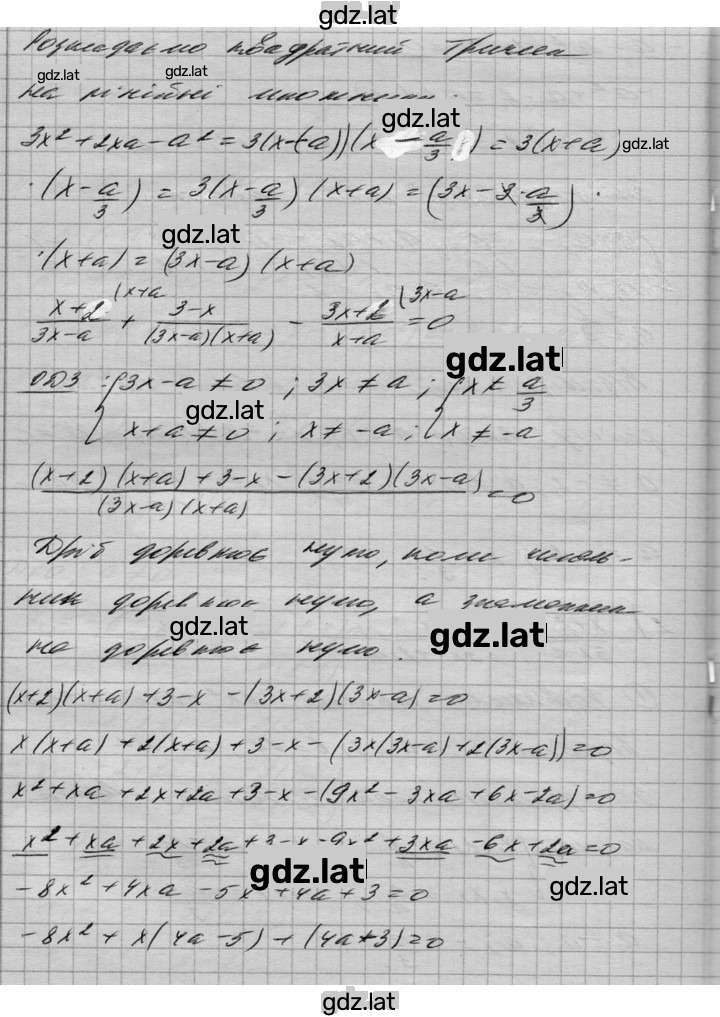 gdz.lat
Розкладаємо квадратний тричлен
gdz.lat gdz.lat
на лінійні множники.
gdz.lat
3x² + 2xa - a² = 3(x-(-a))(x - a/3) = 3(x+a) gdz.lat
·(x - a/3) = 3(x - a/3)(x+a) = (3x - 3·a/3)·
gdz.lat
·(x+a) = (3x-a)(x+a)
(x+2)/(3x-a) (x+a + (3-x)/((3x-a)(x+a)) - (3x+2)/(x+a) (3x-a = 0
gdz.lat
ОДЗ: { 3x-a ≠ 0; 3x ≠ a; { x ≠ a/3
gdz.lat
x+a ≠ 0; x ≠ -a; x ≠ -a
((x+2)(x+a)+3-x-(3x+2)(3x-a))/((3x-a)(x+a)) = 0
Дріб дорівнює нулю, коли чисель-
ник дорівнює нулю, а знаменник
gdz.lat gdz.lat
не дорівнює нулю.
(x+2)(x+a)+3-x-(3x+2)(3x-a)=0
x(x+a)+2(x+a)+3-x-(3x(3x-a)+2(3x-a))=0
x²+xa+2x+2a+3-x-(9x²-3xa+6x-2a)=0
x²+xa+2x+2a+3-x-9x²+3xa-6x+2a=0
gdz.lat gdz.lat
-8x²+4xa-5x+4a+3=0
-8x²+x(4a-5)+(4a+3)=0
gdz.lat